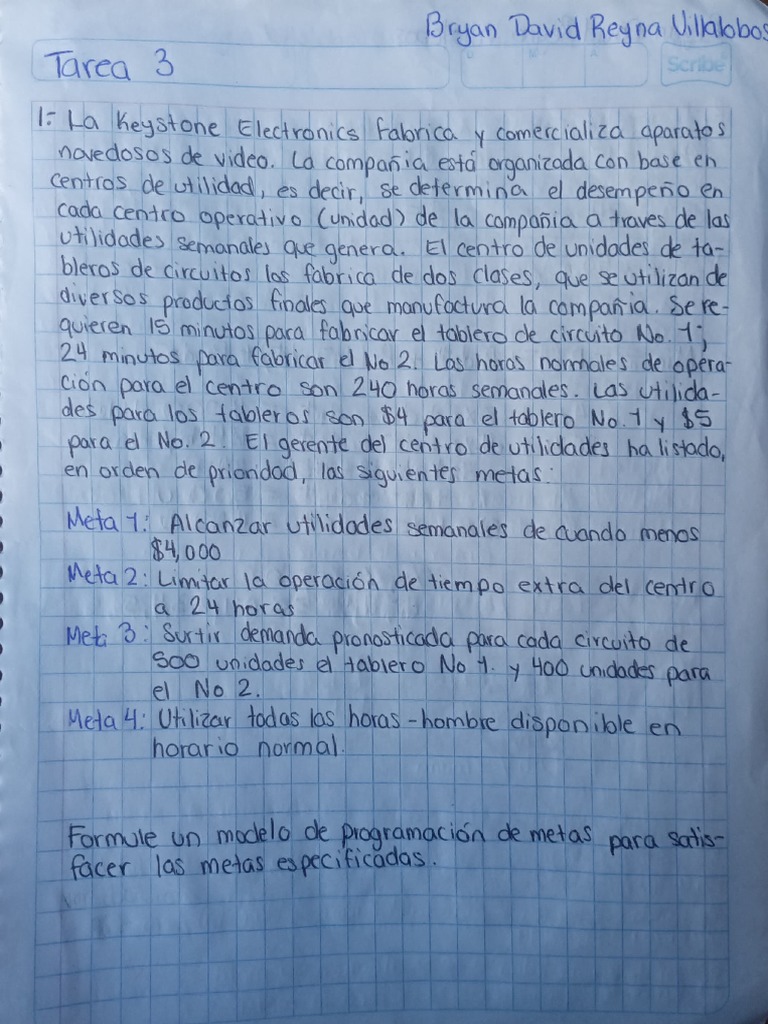 Bryan David Reyna Villalobos
Tarea 3
Scribe
1.- La Keystone Electronics fabrica y comercializa aparatos
novedosos de video. La compañia está organizada con base en
centros de utilidad, es decir, se determina el desempeño en
cada centro operativo (unidad) de la compañia a traves de las
utilidades semanales que genera. El centro de unidades de ta-
bleros de circuitos los fabrica de dos clases, que se utilizan de
diversos productos finales que manufactura la compañia. Se re-
quieren 15 minutos para fabricar el tablero de circuito No. 1;
24 minutos para fabricar el No 2. Las horas normales de opera-
ción para el centro son 240 horas semanales. Las utilida-
des para los tableros son $4 para el tablero No. 1 y $5
para el No. 2. El gerente del centro de utilidades ha listado,
en orden de prioridad, las siguientes metas:
Meta 1: Alcanzar utilidades semanales de cuando menos
$4,000
Meta 2: Limitar la operación de tiempo extra del centro
a 24 horas
Meta 3: Surtir demanda pronosticada para cada circuito de
500 unidades el tablero No 1. y 400 unidades para
el No 2.
Meta 4: Utilizar todas las horas-hombre disponible en
horario normal.
Formule un modelo de programación de metas para satis-
facer las metas especificadas.